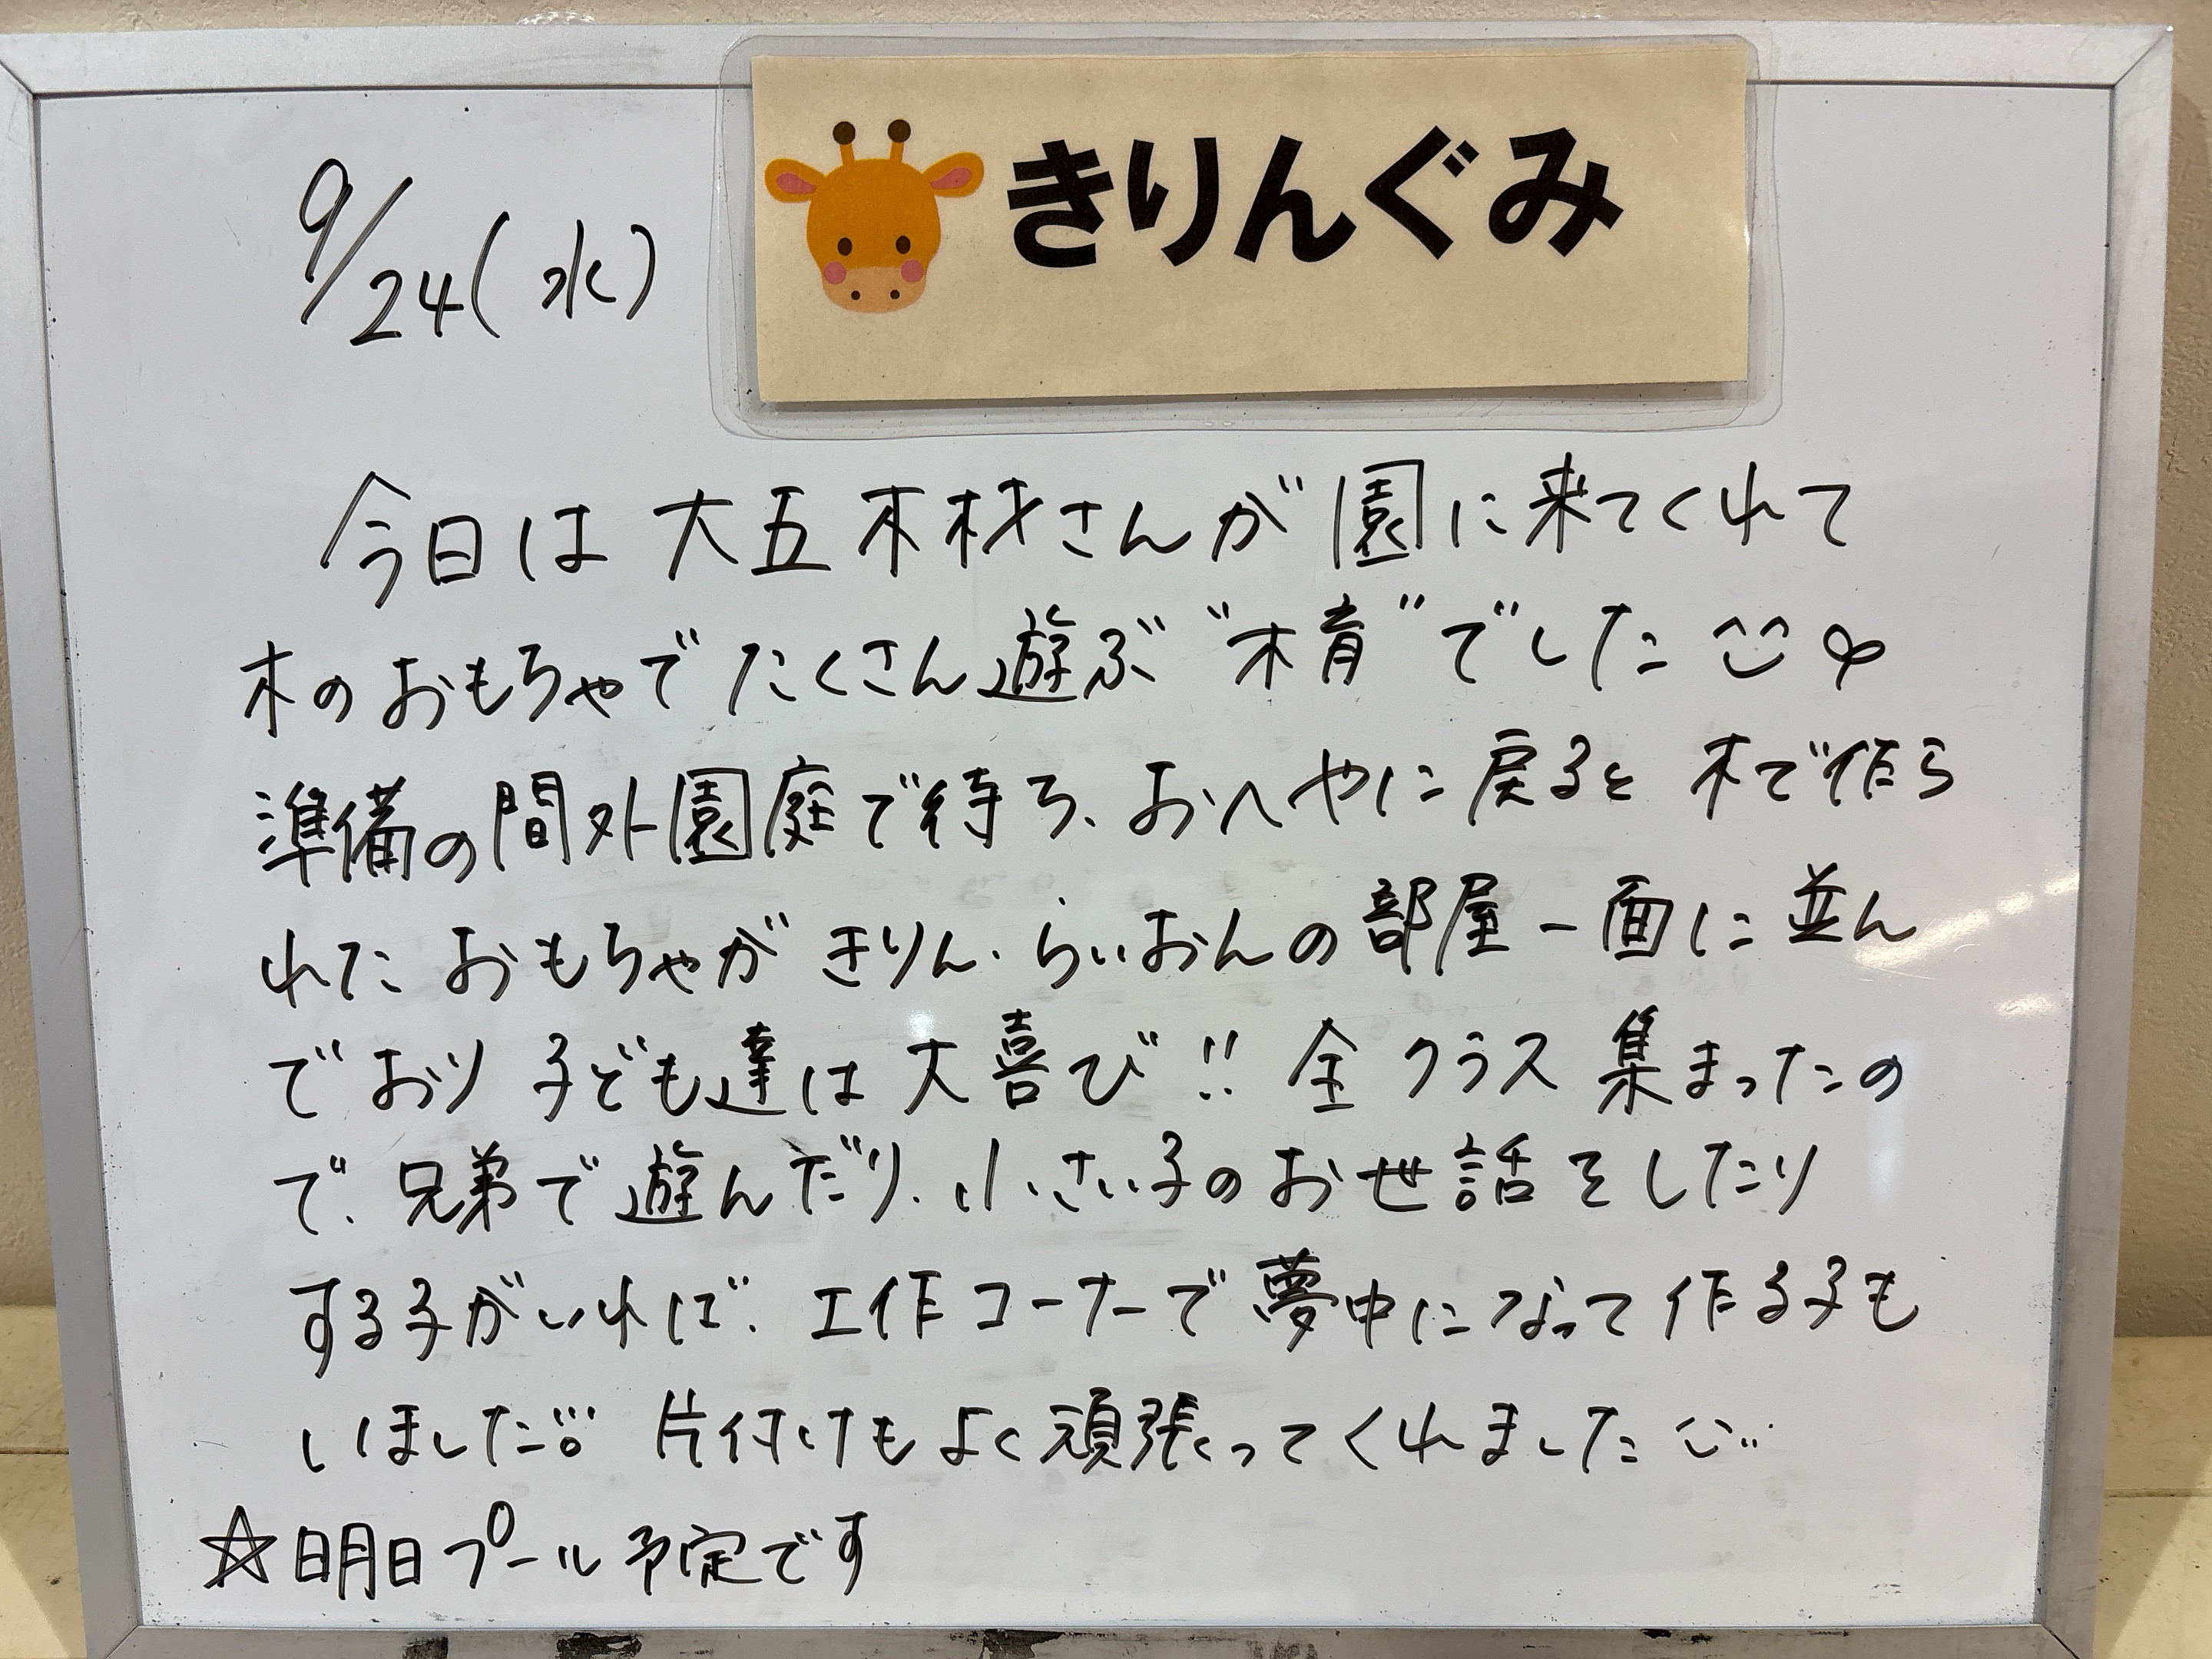 きりんぐみ
9/24(水)
今日は大五木材さんが園に来てくれて
木のおもちゃでたくさん遊ぶ"木育"でした
準備の間外園庭で待ち、おへやに戻ると木で作ら
れたおもちゃがきりん・らいおんの部屋一面に並ん
でおり子ども達は大喜び!!全クラス集まったの
で、兄弟で遊んだり、小さい子のお世話をしたり
する子がいれば、工作コーナーで夢中になって作る子も
いました!!片付けもよく頑張ってくれました
☆明日プール予定です